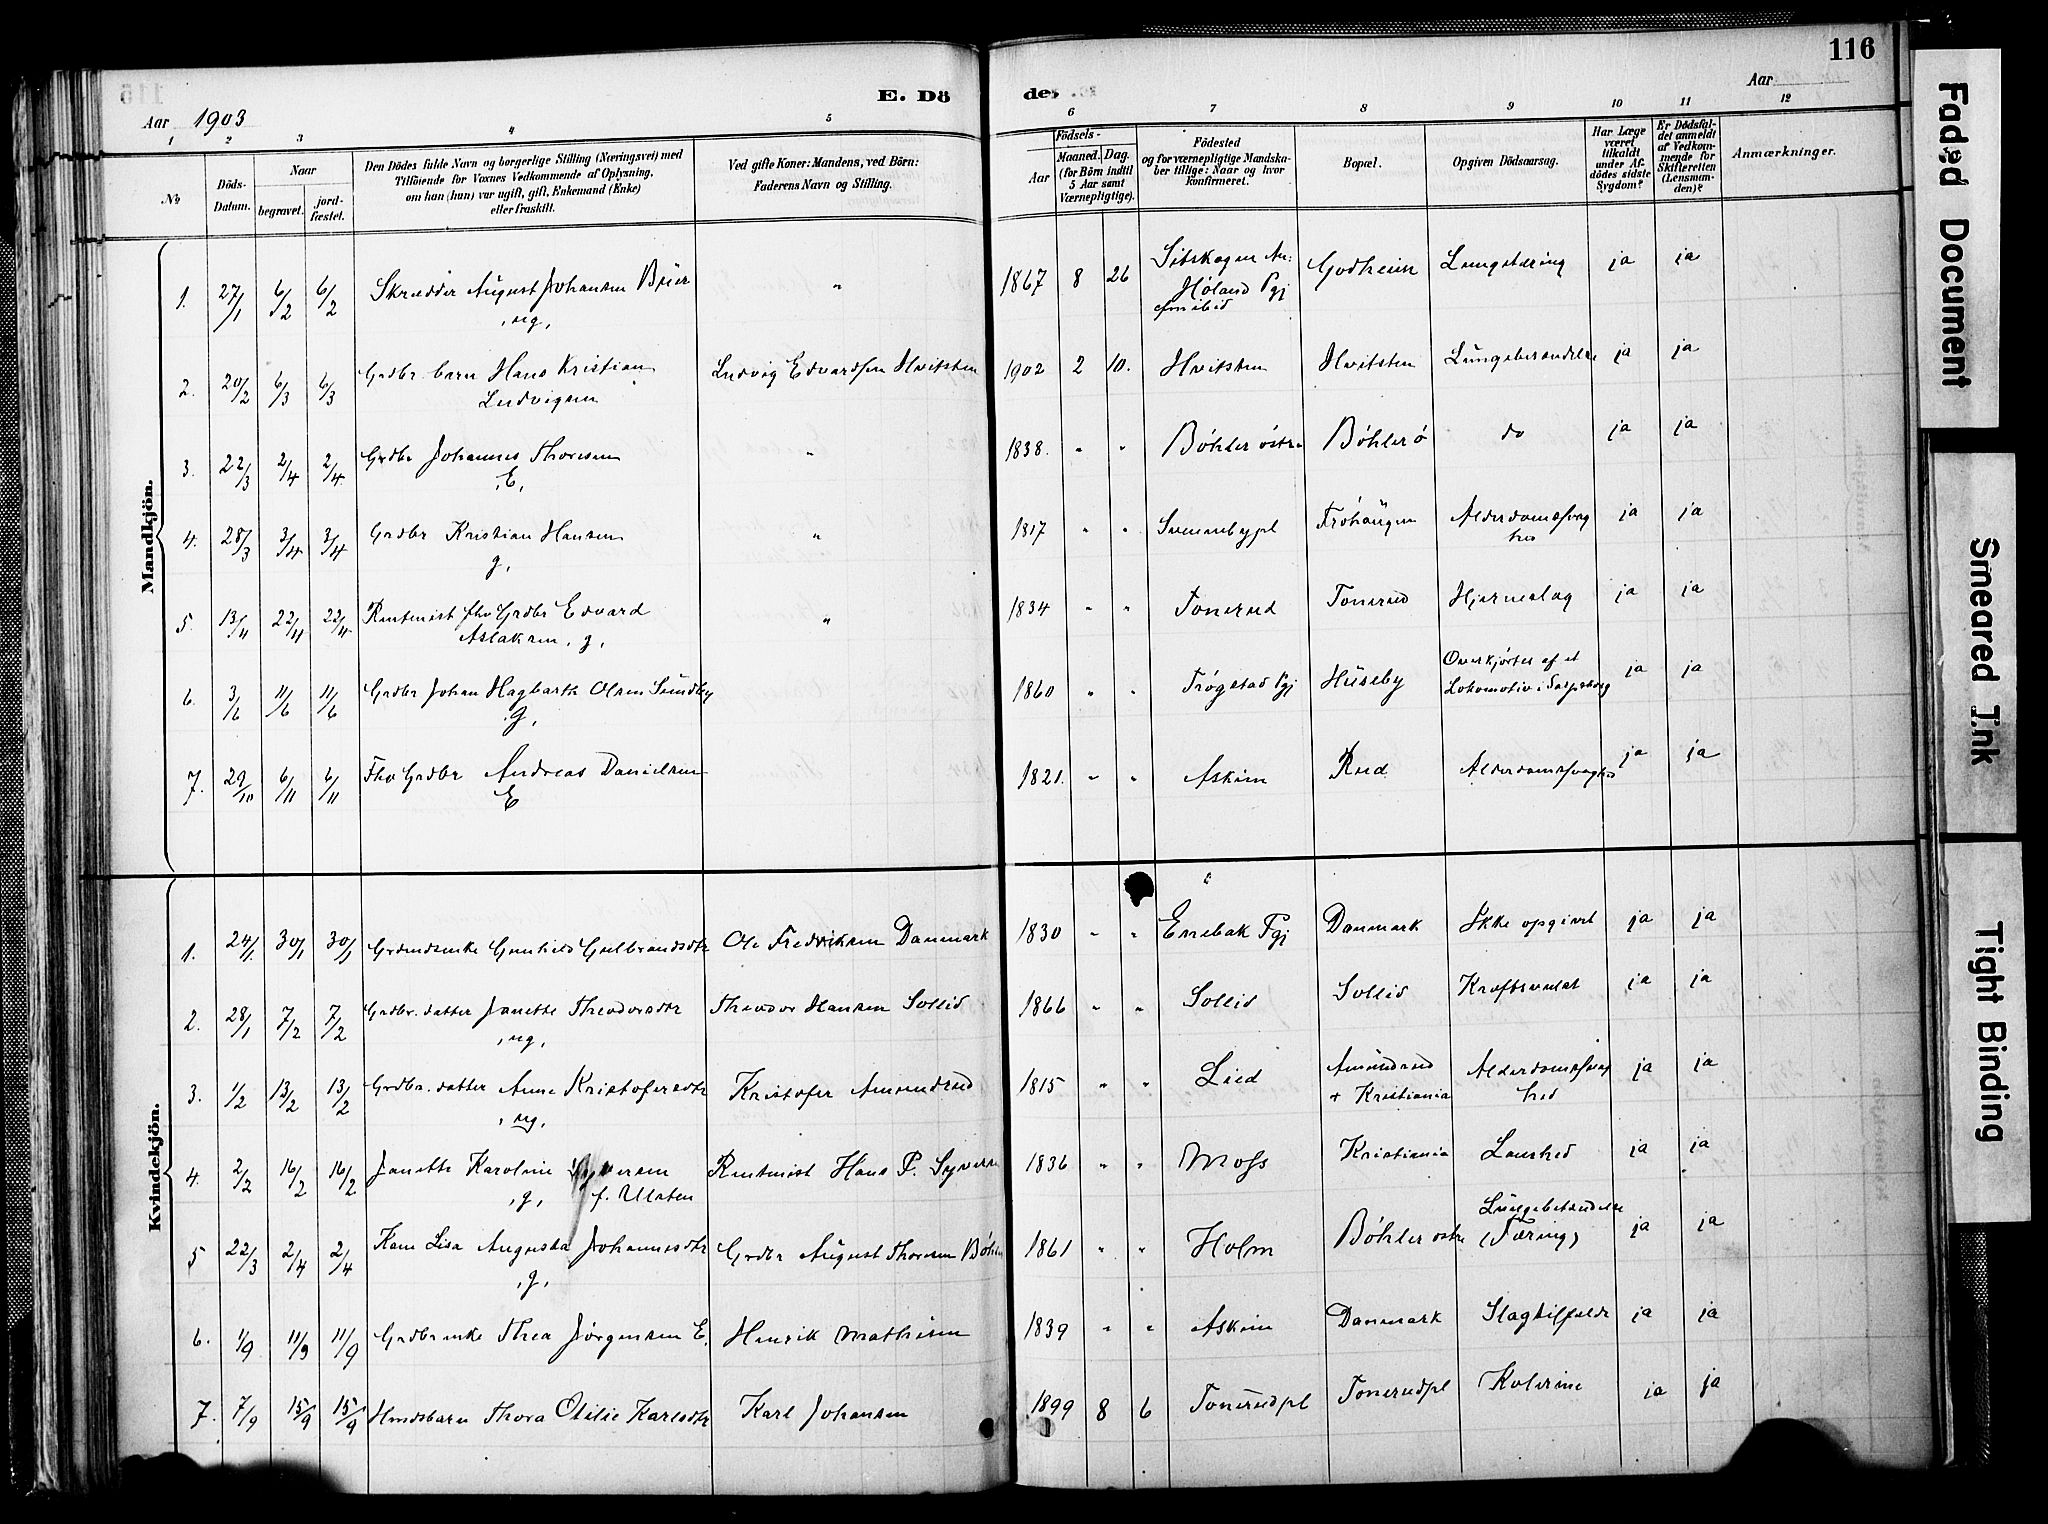 116
E. Döde.
Aar 1903
Aar
1 2 3 4 5 6 7 8 9 10 11 12
No
Döds-Datum.
Naar
begravet.
jord-fæstet.
Den Dödes fulde Navn og borgerlige Stilling (Næringsvei) med
Tilföiende for Voxnes Vedkommende af Oplysning,
om han (hun) var ugift, gift, Enkemand (Enke)
eller fraskilt.
Ved gifte Koner: Mandens, ved Börn:
Faderens Navn og Stilling.
Födsels-
Aar
Maaned. Dag.
(for Börn indtil
5 Aar samt
Værnepligtige).
Födested
og for værnepligtige Mandska-
ber tillige: Naar og hvor
konfirmeret.
Bopæl.
Opgiven Dödsaarsag.
Har Læge
været
tilkaldt
under Af-
dödes sidste
Sygdom?
Er Dödsfal-
det anmeldt
af Vedkom-
mende for
Skifteretten
(Lensman-
den)?
Anmærkninger.
Mandkjön.
1. 27/1 6/2 6/2 Skrædder August Johansen Bjier " 1867 8 26 Sitskogen An: Godheim Lungetæring ja ja
, ug, Höland Pgj
2. 20/2 6/3 6/3 Grdbr. barn Hans Kristian Ludvig Edvardsen Hvitsten 1902 2 10. Hvitsten Hvitsten Lungebetændelse ja ja
Ludvigsen
3. 22/3 2/4 2/4 Grdbr Johannes Thoresen " 1838. " " Böhler östre Böhler ö do ja ja
, E,
4. 28/3 3/4 3/4 Grdbr Kristian Hansen " 1817 " " Svennebypl Fröhaugen Alderdomssvag ja ja
g, hed
5. 13/4 22/4 22/4 Rentenist fhv Grdbr Edvard " 1834 " " Tonerud Tonerud Hjerneslag ja ja
Aslaksen, g,
6. 3/6 11/6 11/6 Grdbr Johan Hagbarth Olsen Sundby 1860 " " Trögstad Pgj Huseby Overkjörtes af et ja ja
g, Lokomotiv i Sarpsborg
7. 29/10 6/11 6/11 Fhv Grdbr Andreas Danielsen 1821. " " Askim Rud Alderdomssvaghed ja ja
E
Kvindekjön.
1. 24/1 30/1 30/1 Grdmdsenke Gunhild Gulbrandsdtr Ole Fredriksen Danmark 1830 " " Enebak Pgj Danmark Ikke opgivet ja ja
2. 28/1 7/2 7/2 Grdbr. datter Janette Theodorsdtr Theodor Hansen Sollid 1866 " " Sollid Sollid Kræftsvulst ja ja
, ug,
3. 1/2 13/2 13/2 Grdbr. datter Anne Kristofersdtr Kristofer Amundrud 1815 " " Lied Amundrud Alderdomssvag ja ja
, ug, + Kristiania hed
4. 2/2 16/2 16/2 Janette Karoline Syversen Rentenist Hans P. Syversen 1836 " " Moss Kristiania Lamhed ja ja
, g, f. Ulsten
5 22/3 2/4 2/4 Kone Lisa Augusta Johannesdtr Grdbr August Thoresen Böhler 1861 " " Holm Böhler östre Lungebetændelse ja ja
, g, (Tæring)
6. 1/9 11/9 11/9 Grdbr enke Thea Jörgensen E. Henrik Mathisen 1839 " " Askim Danmark Slagtilfælde ja ja
7. 7/9 15/9 15/9 Husmdsbarn Thora Otilie Karlsdtr Karl Johansen 1899 8 6 Tonerudpl Tonerudpl Kolerine ja ja
Faded Document
Smeared Ink
Tight Binding